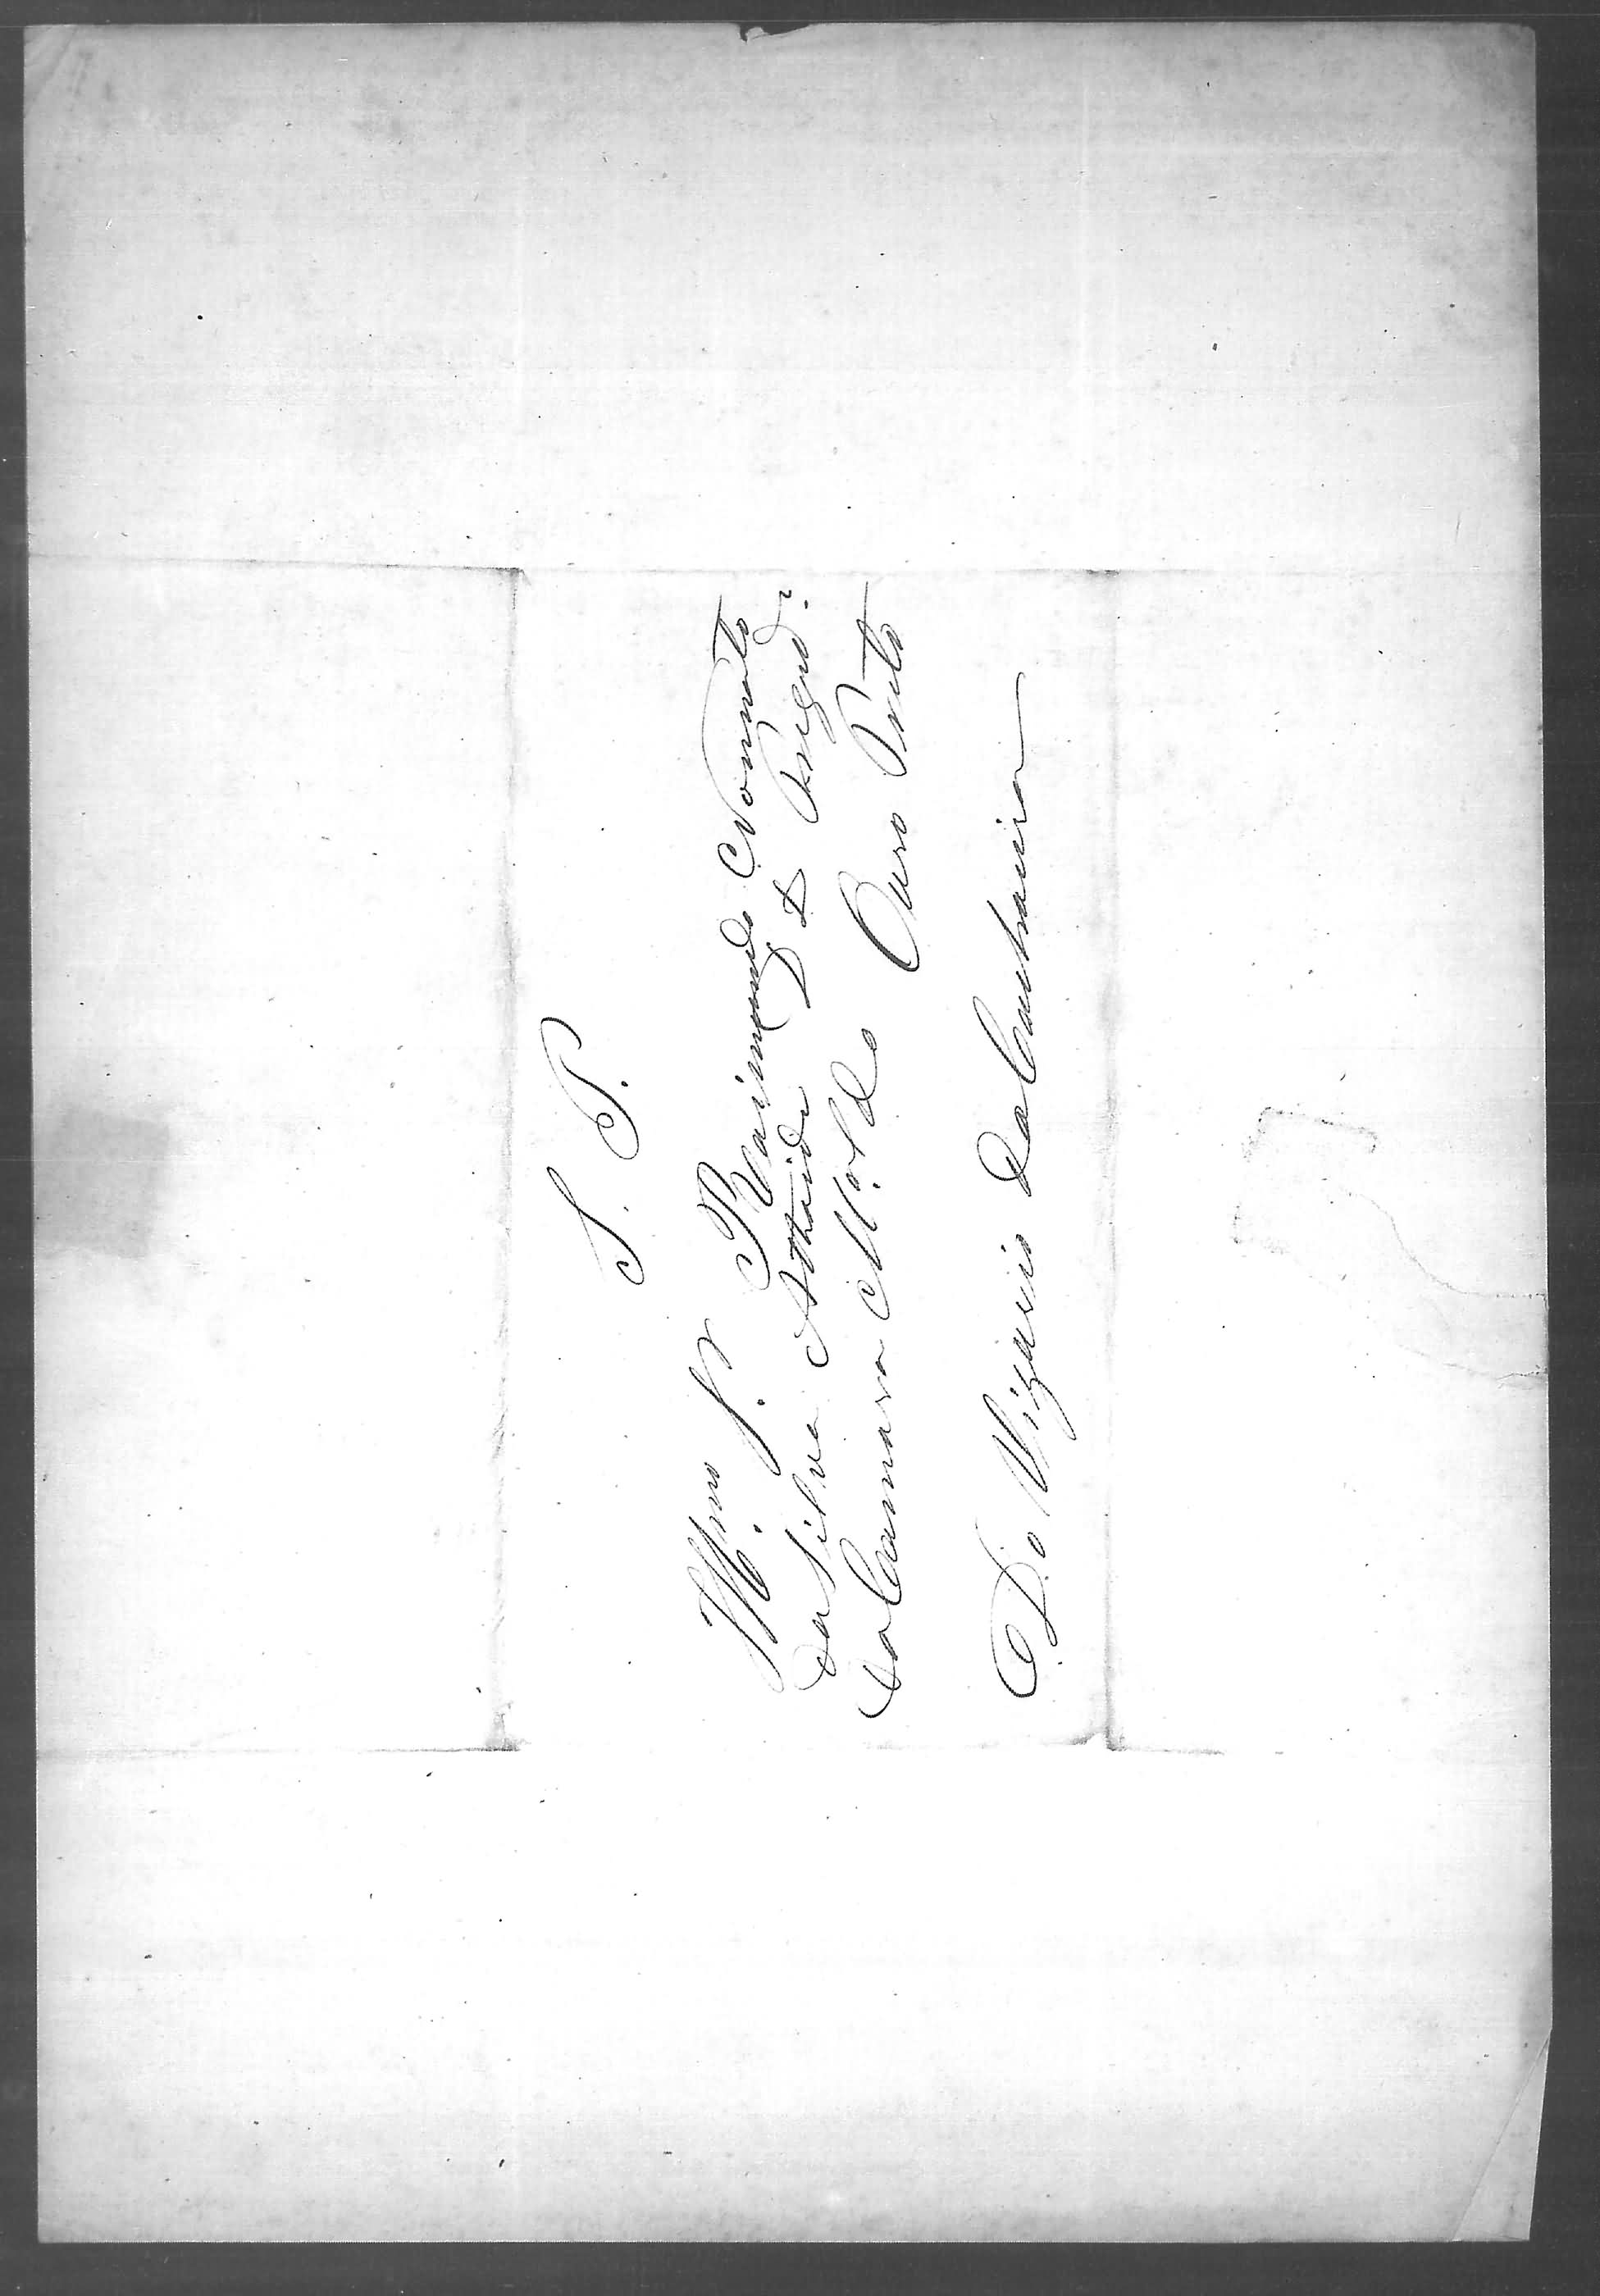 S. P.
Illmo. Sr. Raimundo Nonnato
da Silva Athaide D D Presid.e
da Camara M.al do Ouro Preto
Do Vigario da Caxoeira